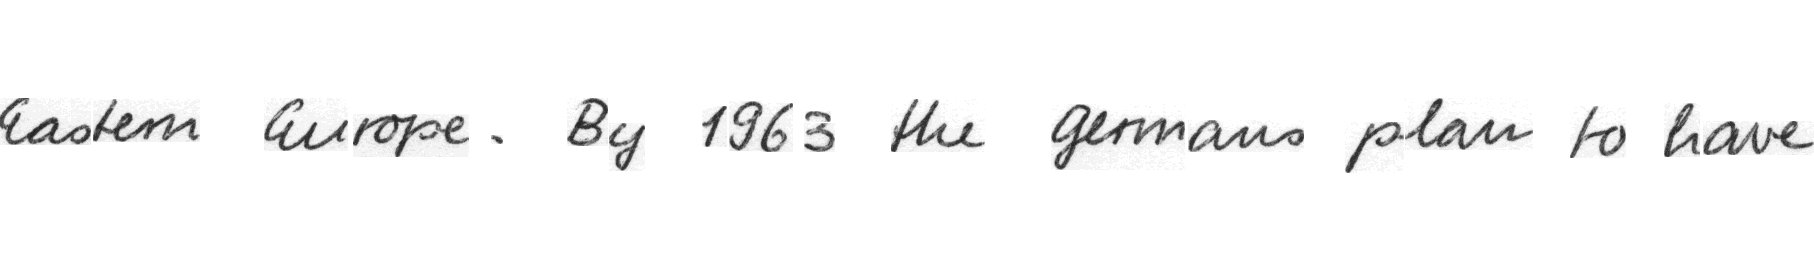 Eastern Europe. By 1963 the Germans plan to have